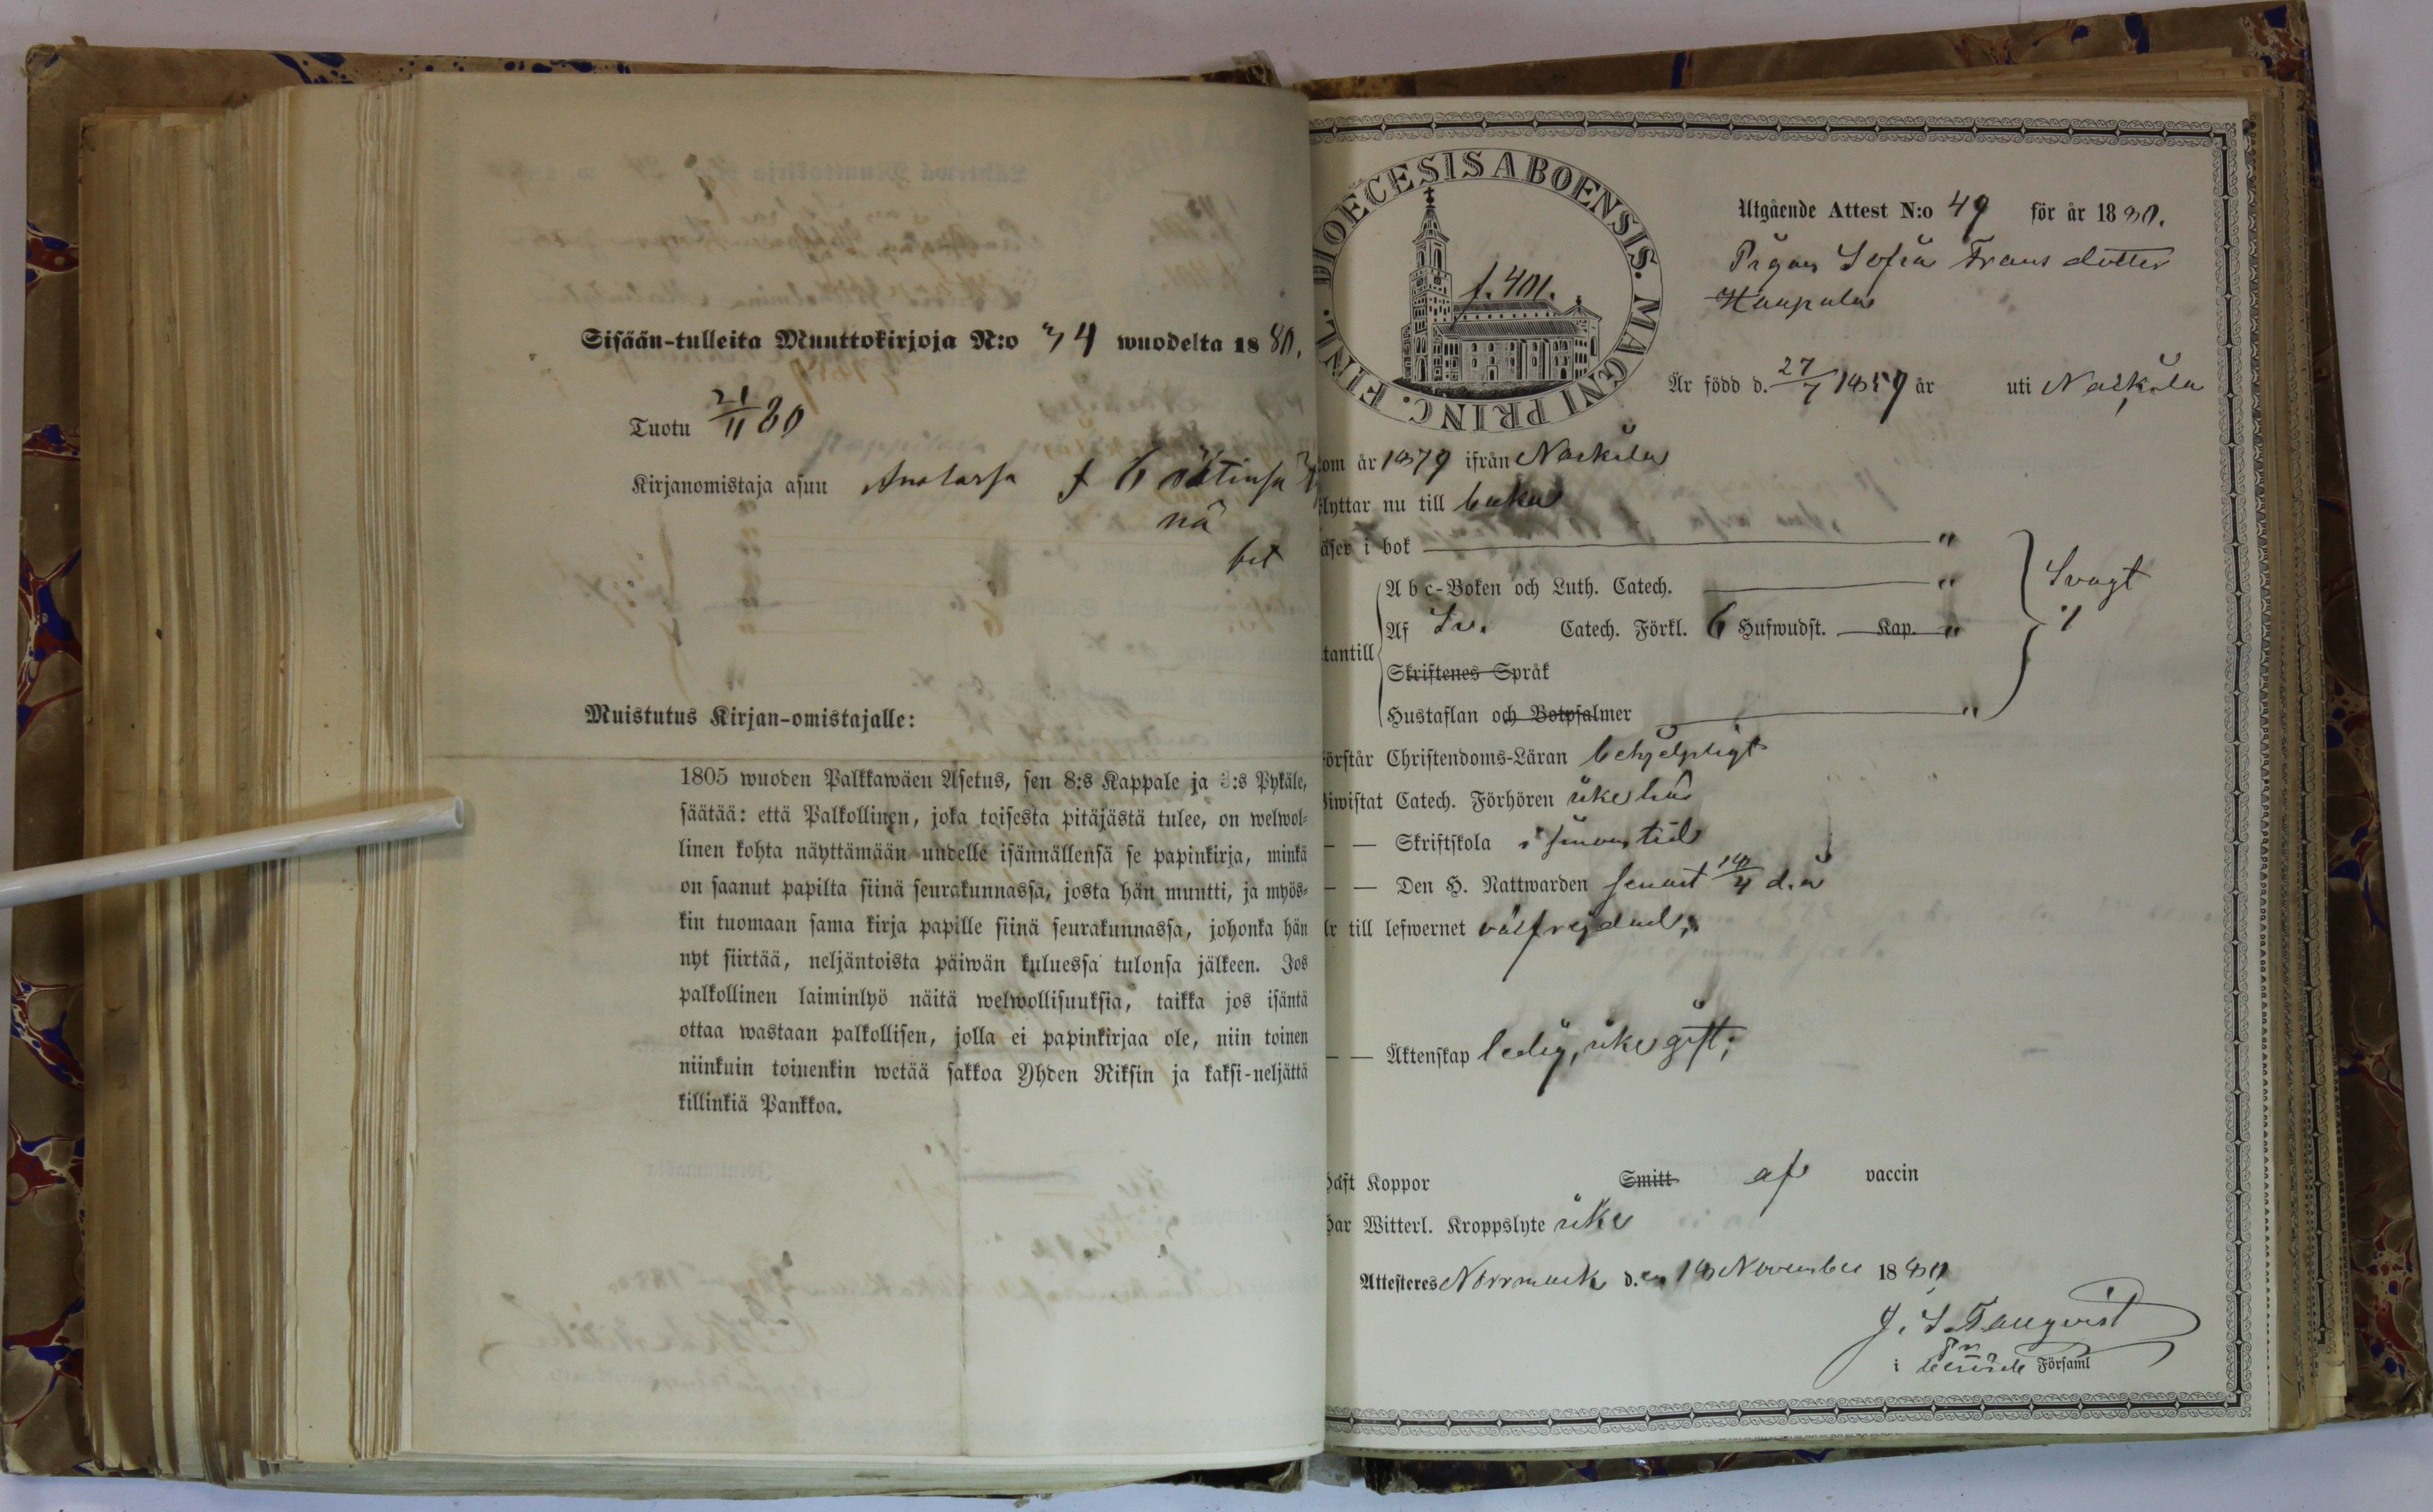 Sisään-tulleita Muuttokirjoja N:o 34 wuodelta 1880.
Tuotu 21/11 80
Kirjanomistaja asuu
nä
bet
Muistutus Kirjan-omistajalle:
1805 wuoden Palkkawäen Asetus, sen 8:s Kappale ja 3:s Pykäle,
säätää: että Palkollinen, joka toisesta pitäjästä tulee, on welwol-
linen kohta näyttämään uudelle isännällensä se papinkirja, minkä
on saanut papilta siinä seurakunnassa, josta hän muutti, ja myös-
kin tuomaan sama kirja papille siinä seurakunnassa, johonka hän
nyt siirtää, neljäntoista päiwän kuluessa tulonsa jälkeen. Jos
palkollinen laiminlyö näitä welwollisuuksia, taikka jos isäntä
ottaa wastaan palkollisen, jolla ei papinkirjaa ole, niin toinen
niinkuin toinenkin wetää sakkoa Yhden Riksin ja kaksi-neljättä
killinkiä Pankkoa.
DIOECESIS ABOENSIS. MAGNI PRINC. FINL.
f. 401.
Utgående Attest N:o 49 för år 1880.
Pigan Sofia Frans dotter
Haapala
Är född d. 27/7 1859 år uti Nackila
om år 1879 ifrån Nackila
flyttar nu till
äser i bok "
A b c-Boken och Luth. Catech. "
Af Sv. Catech. Förkl. 6 Hufwudst. Kap. "
Svagt
tantill
Skriftenes Språk
Hustaflan och Botpsalmer "
örstår Christendoms-Läran behjelpligt
iwistat Catech. Förhören icke här
— — Skriftskola i sinom tid
— — Den H. Nattwarden senast 18/4 d. å
r till lefwernet välfrejdad;
— — Äktenskap ledig, icke gift;
haft Koppor Smitt af vaccin
har Witterl. Kroppslyte icke
Attesteres Norrmark d. en 18 November 1880
J. S. Tallqvist
i berörde Församl